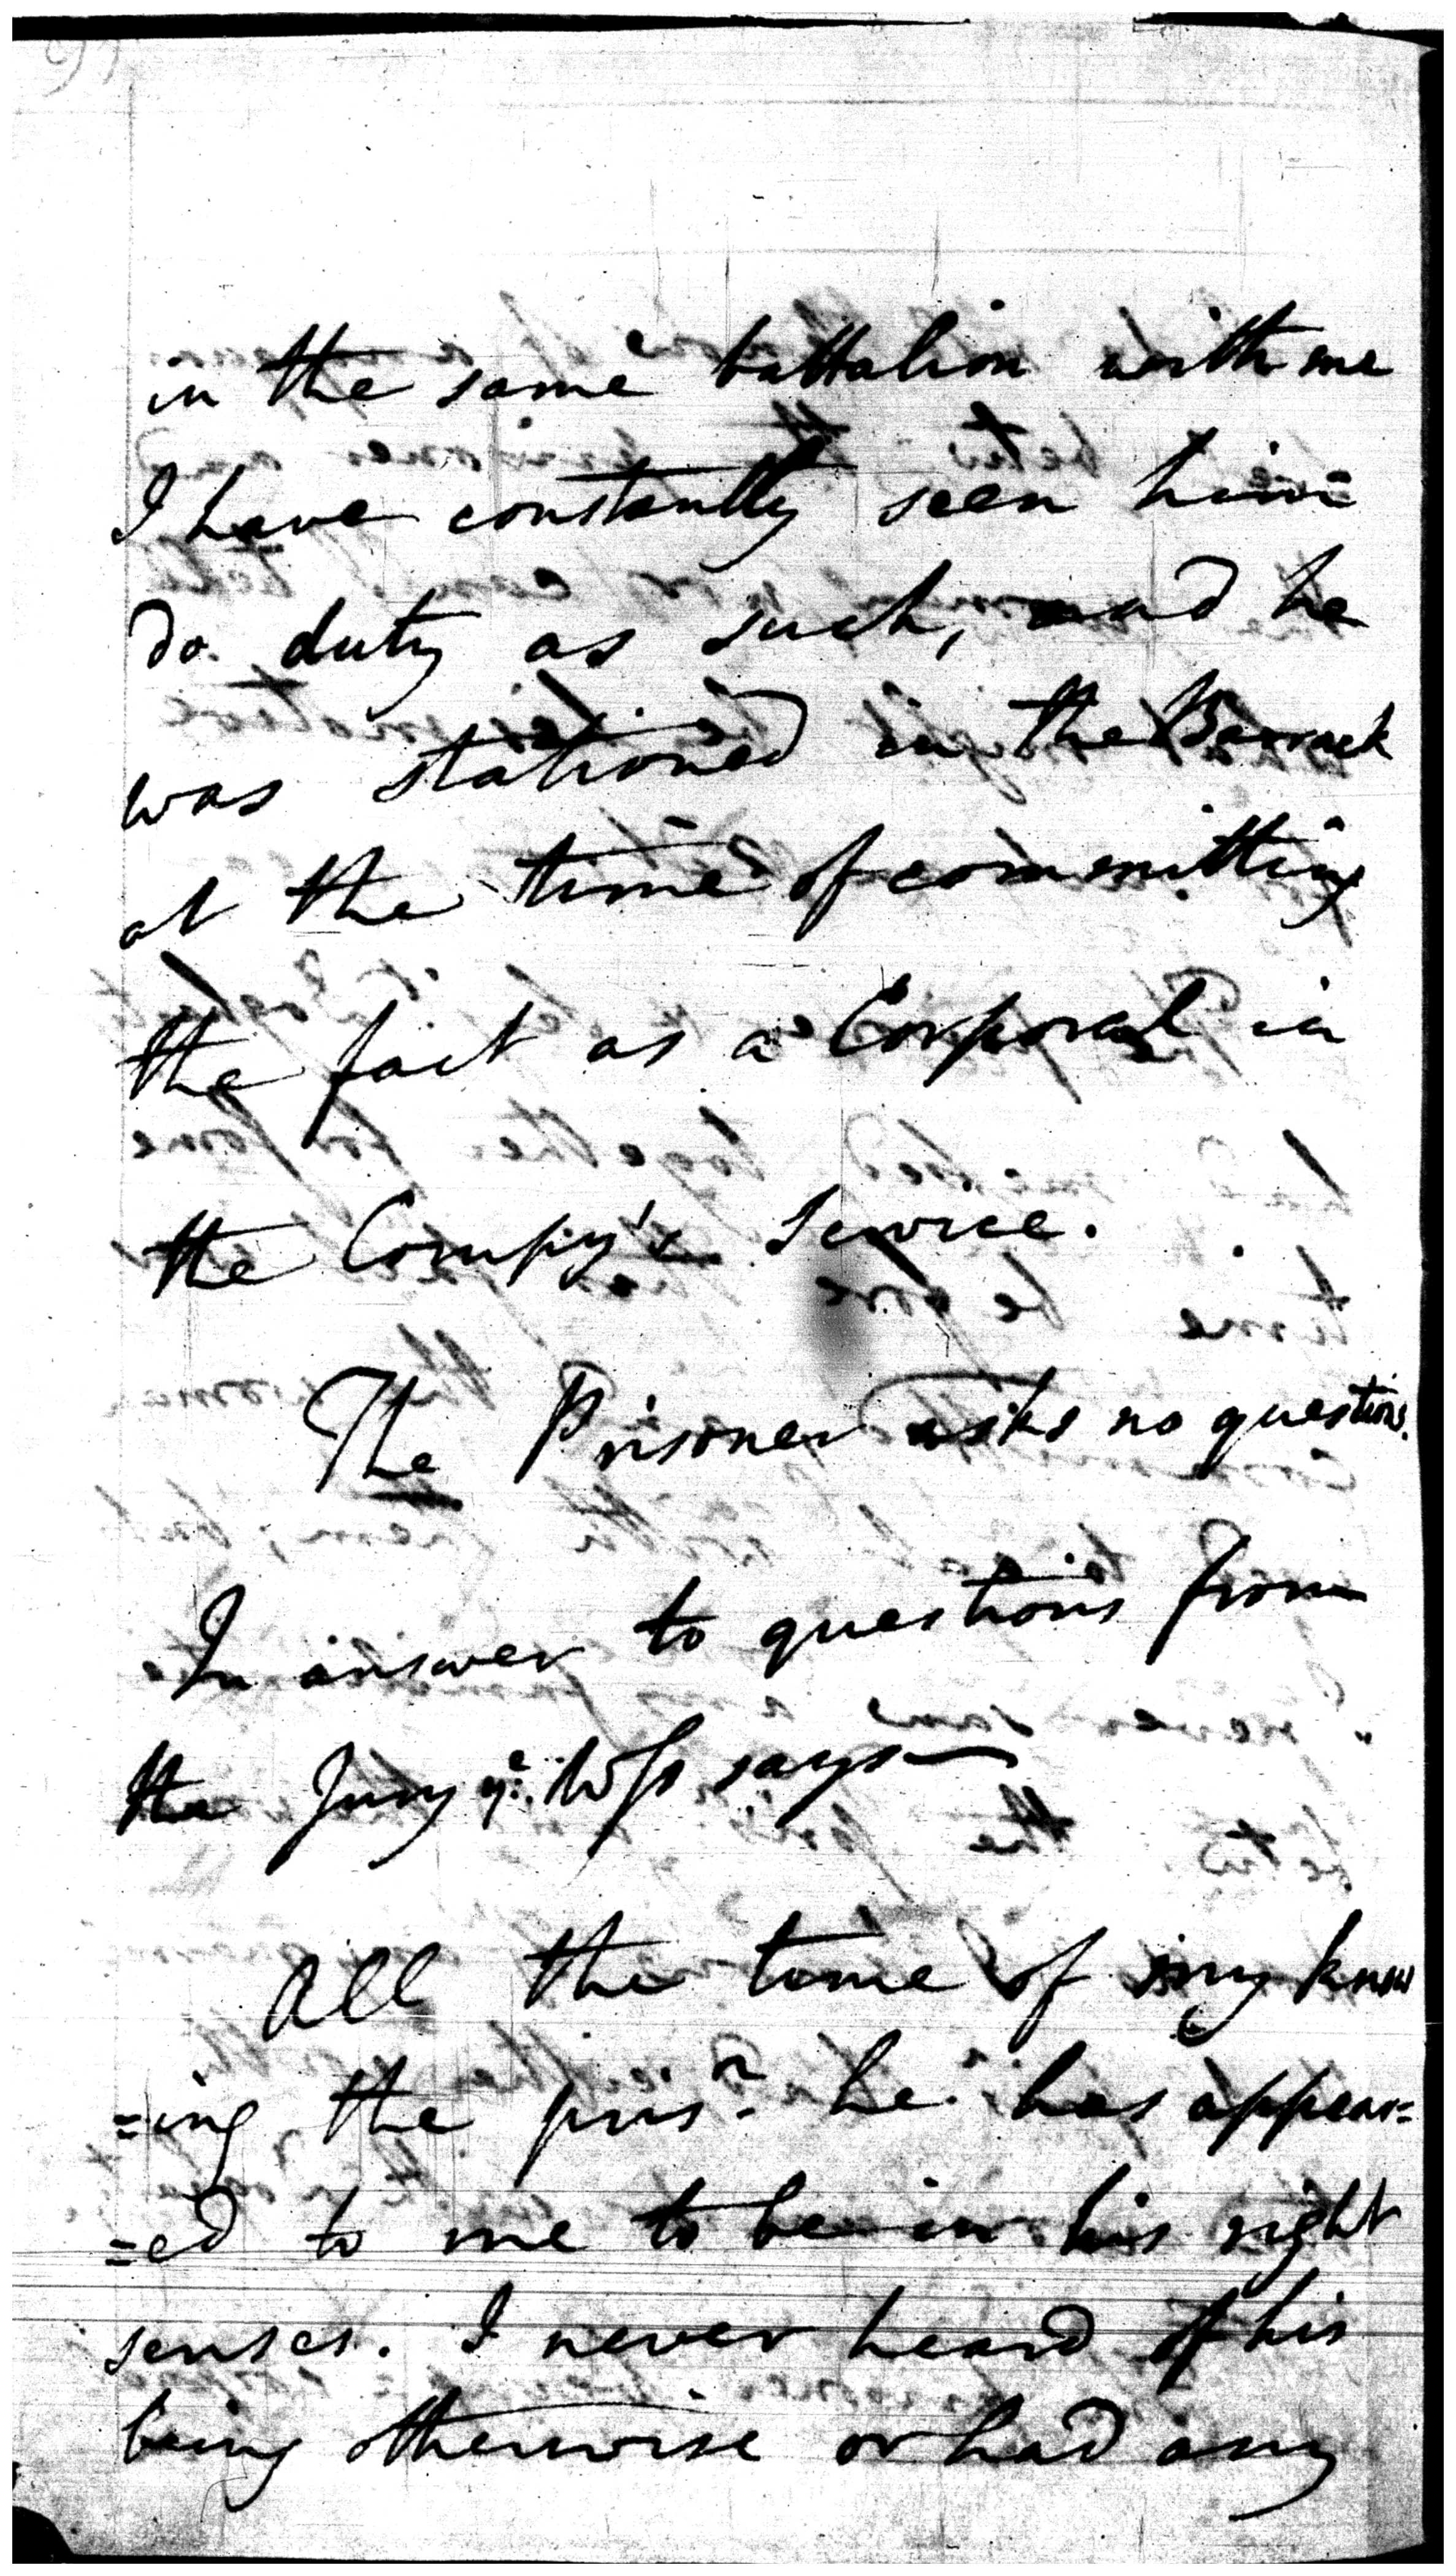 in the same battalion with me
I have constantly seen him
do duty as such, and he
was stationed in the Barrack
at the time of committing
the fact as a Corporal in
the Compy's Service.
The Prisoner asks no questions.
In answer to questions from
the Jury ye. Wss says
All the time of my know
=ing the prisr. he has appear=
=ed to me to be in his right
senses. I never heard of his
being otherwise or had any